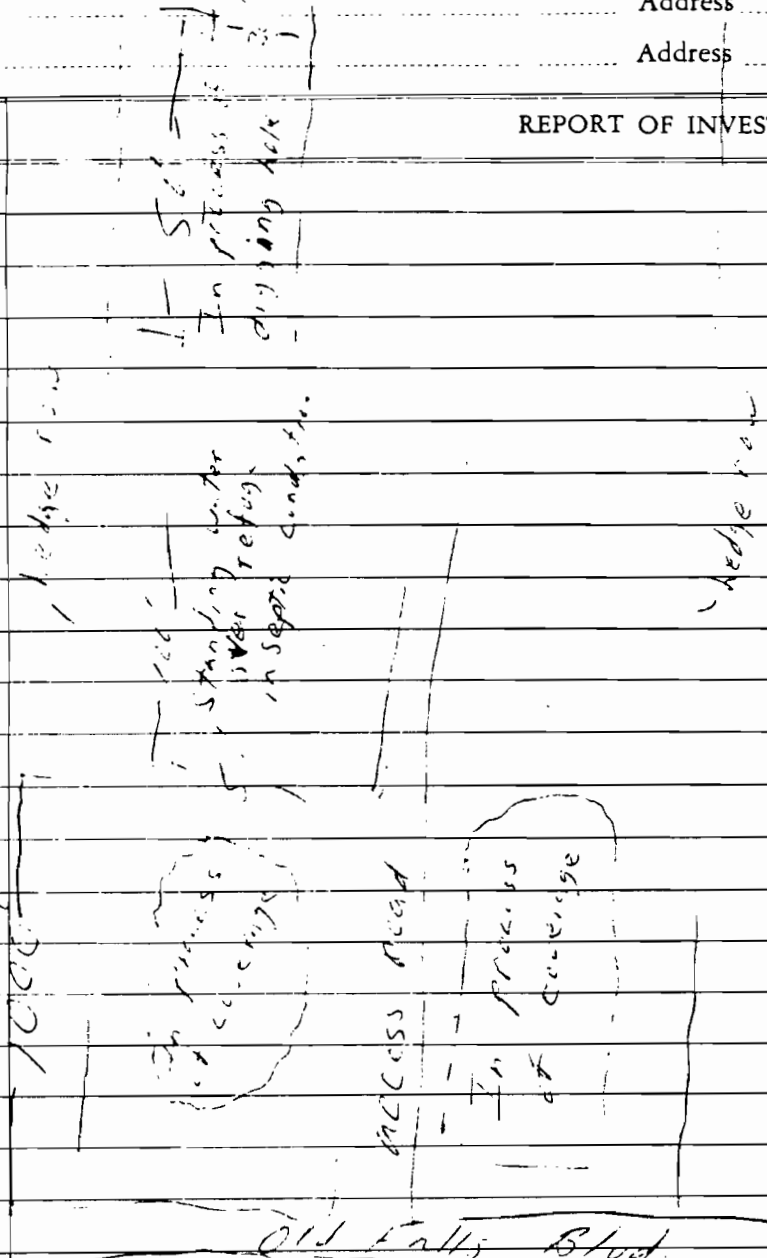 Address
Address
REPORT OF INVES
50'
In process of
digging hole
hedge row
100'
Standing water
over refuge
in septic condition
hedge row
1000
In process
of coverage
access road
In process
of coverage
Old Falls Blvd.